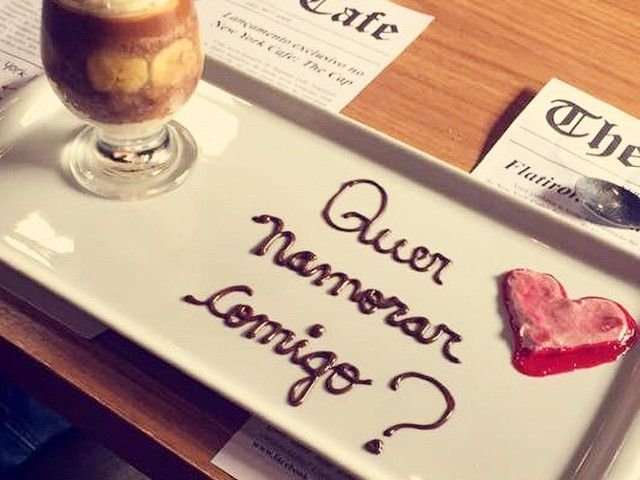 Cafe
Lançamento exclusivo no
New York Cafe: The Cap
york
The
Flatiron
Quer
Namorar
comigo?
www.facebook